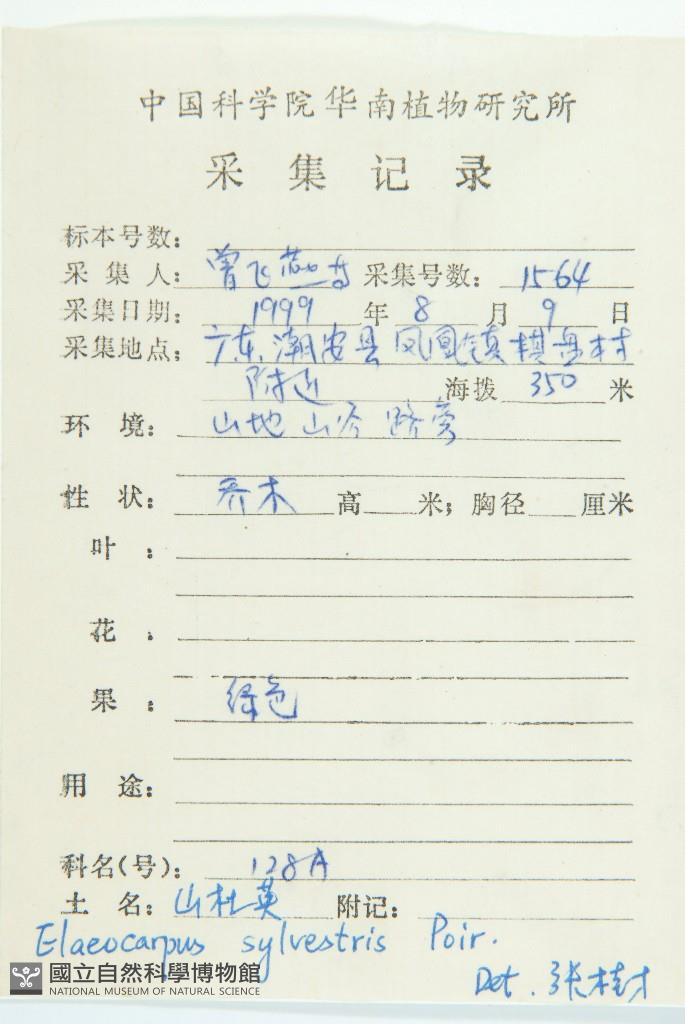 中国科学院华南植物研究所
采集记录
标本号数：
采集人：曾飞燕 采集号数：1564
采集日期：1999年8月9日
采集地点：广东潮安县凤凰镇棋盘村
附近 海拨350米
环境：山地山谷路旁
性状：乔木 高 米；胸径 厘米
叶：
花：
果：绿色
用途：
科名(号)：128A
土名：山杜英 附记：
Elaeocarpus sylvestris Poir.
Det. 张桂才
國立自然科學博物館
NATIONAL MUSEUM OF NATURAL SCIENCE